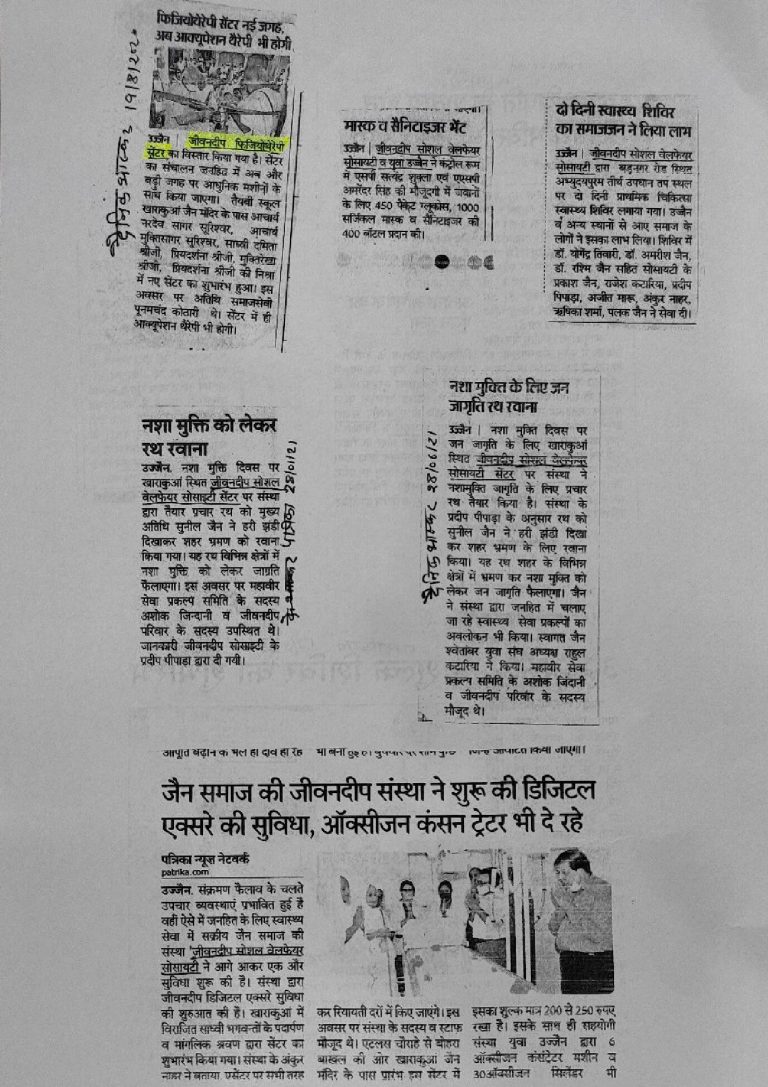 फिजियोथेरेपी सेंटर नई जगह,
अब आक्यूपेशन थैरेपी भी होगी
दैनिक भास्कर 19/8/2020
उज्जैन | जीवनदीप फिजियोथेरेपी
सेंटर का विस्तार किया गया है। सेंटर
का संचालन जनहित में अब और
बड़ी जगह पर आधुनिक मशीनों के
साथ किया जाएगा। तैयबी स्कूल
खाराकुआं जैन मंदिर के पास आचार्य
नरदेव सागर सूरिश्वर, आचार्य
मुक्तिसागर सुरिश्वर, साध्वी दमिता
श्रीजी, प्रियदर्शना श्रीजी, मुक्तिरेखा
श्रीजी, प्रियदर्शना श्रीजी की निश्रा
में नए सेंटर का शुभारंभ हुआ। इस
अवसर पर अतिथि समाजसेवी
पूनमचंद कोठारी थे। सेंटर में ही
आक्यूपेशन थैरेपी भी होगी।
मास्क व सैनिटाइजर भेंट
उज्जैन | जीवनदीप सोशल वेलफेयर
सोसायटी व युवा उज्जैन ने कंट्रोल रूम
में एसपी सत्येंद्र शुक्ला एवं एएसपी
अमरेंद्र सिंह की मौजूदगी में जवानों
के लिए 450 पैकेट ग्लूकोस, 1000
सर्जिकल मास्क व सैनिटाइजर की
400 बॉटल प्रदान की।
दो दिनी स्वास्थ्य शिविर
का समाजजन ने लिया लाभ
उज्जैन। जीवनदीप सोशल वेलफेयर
सोसायटी द्वारा बड़नगर रोड स्थित
अभ्युदयपुरम तीर्थ उपधान तप स्थल
पर दो दिनी प्राथमिक चिकित्सा
स्वास्थ्य शिविर लगाया गया। उज्जैन
व अन्य स्थानों से आए समाज के
लोगों ने इसका लाभ लिया। शिविर में
डॉ. योगेंद्र तिवारी, डॉ. अमरीश जैन,
डॉ. रश्मि जैन सहित सोसायटी के
प्रकाश जैन, राजेश कटारिया, प्रदीप
पिपाड़ा, अजीत मारू, अंकुर नाहर,
ऋषिका शर्मा, पलक जैन ने सेवा दी।
नशा मुक्ति को लेकर
रथ रवाना
उज्जैन. नशा मुक्ति दिवस पर
खाराकुआं स्थित जीवनदीप सोशल
वेलफेयर सोसाइटी सेंटर पर संस्था
द्वारा तैयार प्रचार रथ को मुख्य
अतिथि सुनील जैन ने हरी झंडी
दिखाकर शहर भ्रमण को रवाना
किया गया। यह रथ विभिन्न क्षेत्रों में
नशा मुक्ति को लेकर जाग्रति
फैलाएगा। इस अवसर पर महावीर
सेवा प्रकल्प समिति के सदस्य
अशोक जिन्दानी व जीवनदीप
परिवार के सदस्य उपस्थित थे।
जानकारी जीवनदीप सोसाइटी के
प्रदीप पीपाड़ा द्वारा दी गयी।
पत्रिका 28/01/21
नशा मुक्ति के लिए जन
जागृति रथ रवाना
दैनिक भास्कर 28/06/21
उज्जैन | नशा मुक्ति दिवस पर
जन जागृति के लिए खाराकुआं
स्थित जीवनदीप सोशल वेलफेयर
सोसायटी सेंटर पर संस्था ने
नशामुक्ति जागृति के लिए प्रचार
रथ तैयार किया है। संस्था के
प्रदीप पीपाड़ा के अनुसार रथ को
सुनील जैन ने हरी झंडी दिखा
कर शहर भ्रमण के लिए रवाना
किया। यह रथ शहर के विभिन्न
क्षेत्रों में भ्रमण कर नशा मुक्ति को
लेकर जन जागृति फैलाएगा। जैन
ने संस्था द्वारा जनहित में चलाए
जा रहे स्वास्थ्य सेवा प्रकल्पों का
अवलोकन भी किया। स्वागत जैन
श्वेतांबर युवा संघ अध्यक्ष राहुल
कटारिया ने किया। महावीर सेवा
प्रकल्प समिति के अशोक जिंदानी
व जीवनदीप परिवार के सदस्य
मौजूद थे।
जैन समाज की जीवनदीप संस्था ने शुरू की डिजिटल
एक्सरे की सुविधा, ऑक्सीजन कंसन ट्रेटर भी दे रहे
पत्रिका न्यूज नेटवर्क
patrika.com
उज्जैन. संक्रमण फैलाव के चलते
उपचार व्यवस्थाएं प्रभावित हुई है
वहीं ऐसे में जनहित के लिए स्वास्थ्य
सेवा में सक्रीय जैन समाज की
संस्था 'जीवनदीप सोशल वेलफेयर
सोसायटी ने आगे आकर एक और
सुविधा शुरू की है। संस्था द्वारा
जीवनदीप डिजिटल एक्सरे सुविधा
की शुरुआत की है। खाराकुआं में
विराजित साध्वी भगवंतों के पदार्पण
व मांगलिक श्रवण द्वारा सेंटर का
शुभारंभ किया गया। संस्था के अंकुर
नाहर ने बताया, एसेंटर पर सभी तरह
कर रियायती दरों में किए जाएंगे। इस
अवसर पर संस्था के सदस्य व स्टाफ
मौजूद थे। एटलस चौराहे से बोहरा
बाखल की ओर खाराकुआं जैन
मंदिर के पास प्रारंभ इस सेंटर में
इसका शुल्क मात्र 200 से 250 रुपए
रखा है। इसके साथ ही सहयोगी
संस्था युवा उज्जैन द्वारा 6
ऑक्सीजन कंसंट्रेटर मशीन व
30ऑक्सीजन सिलेंडर भी